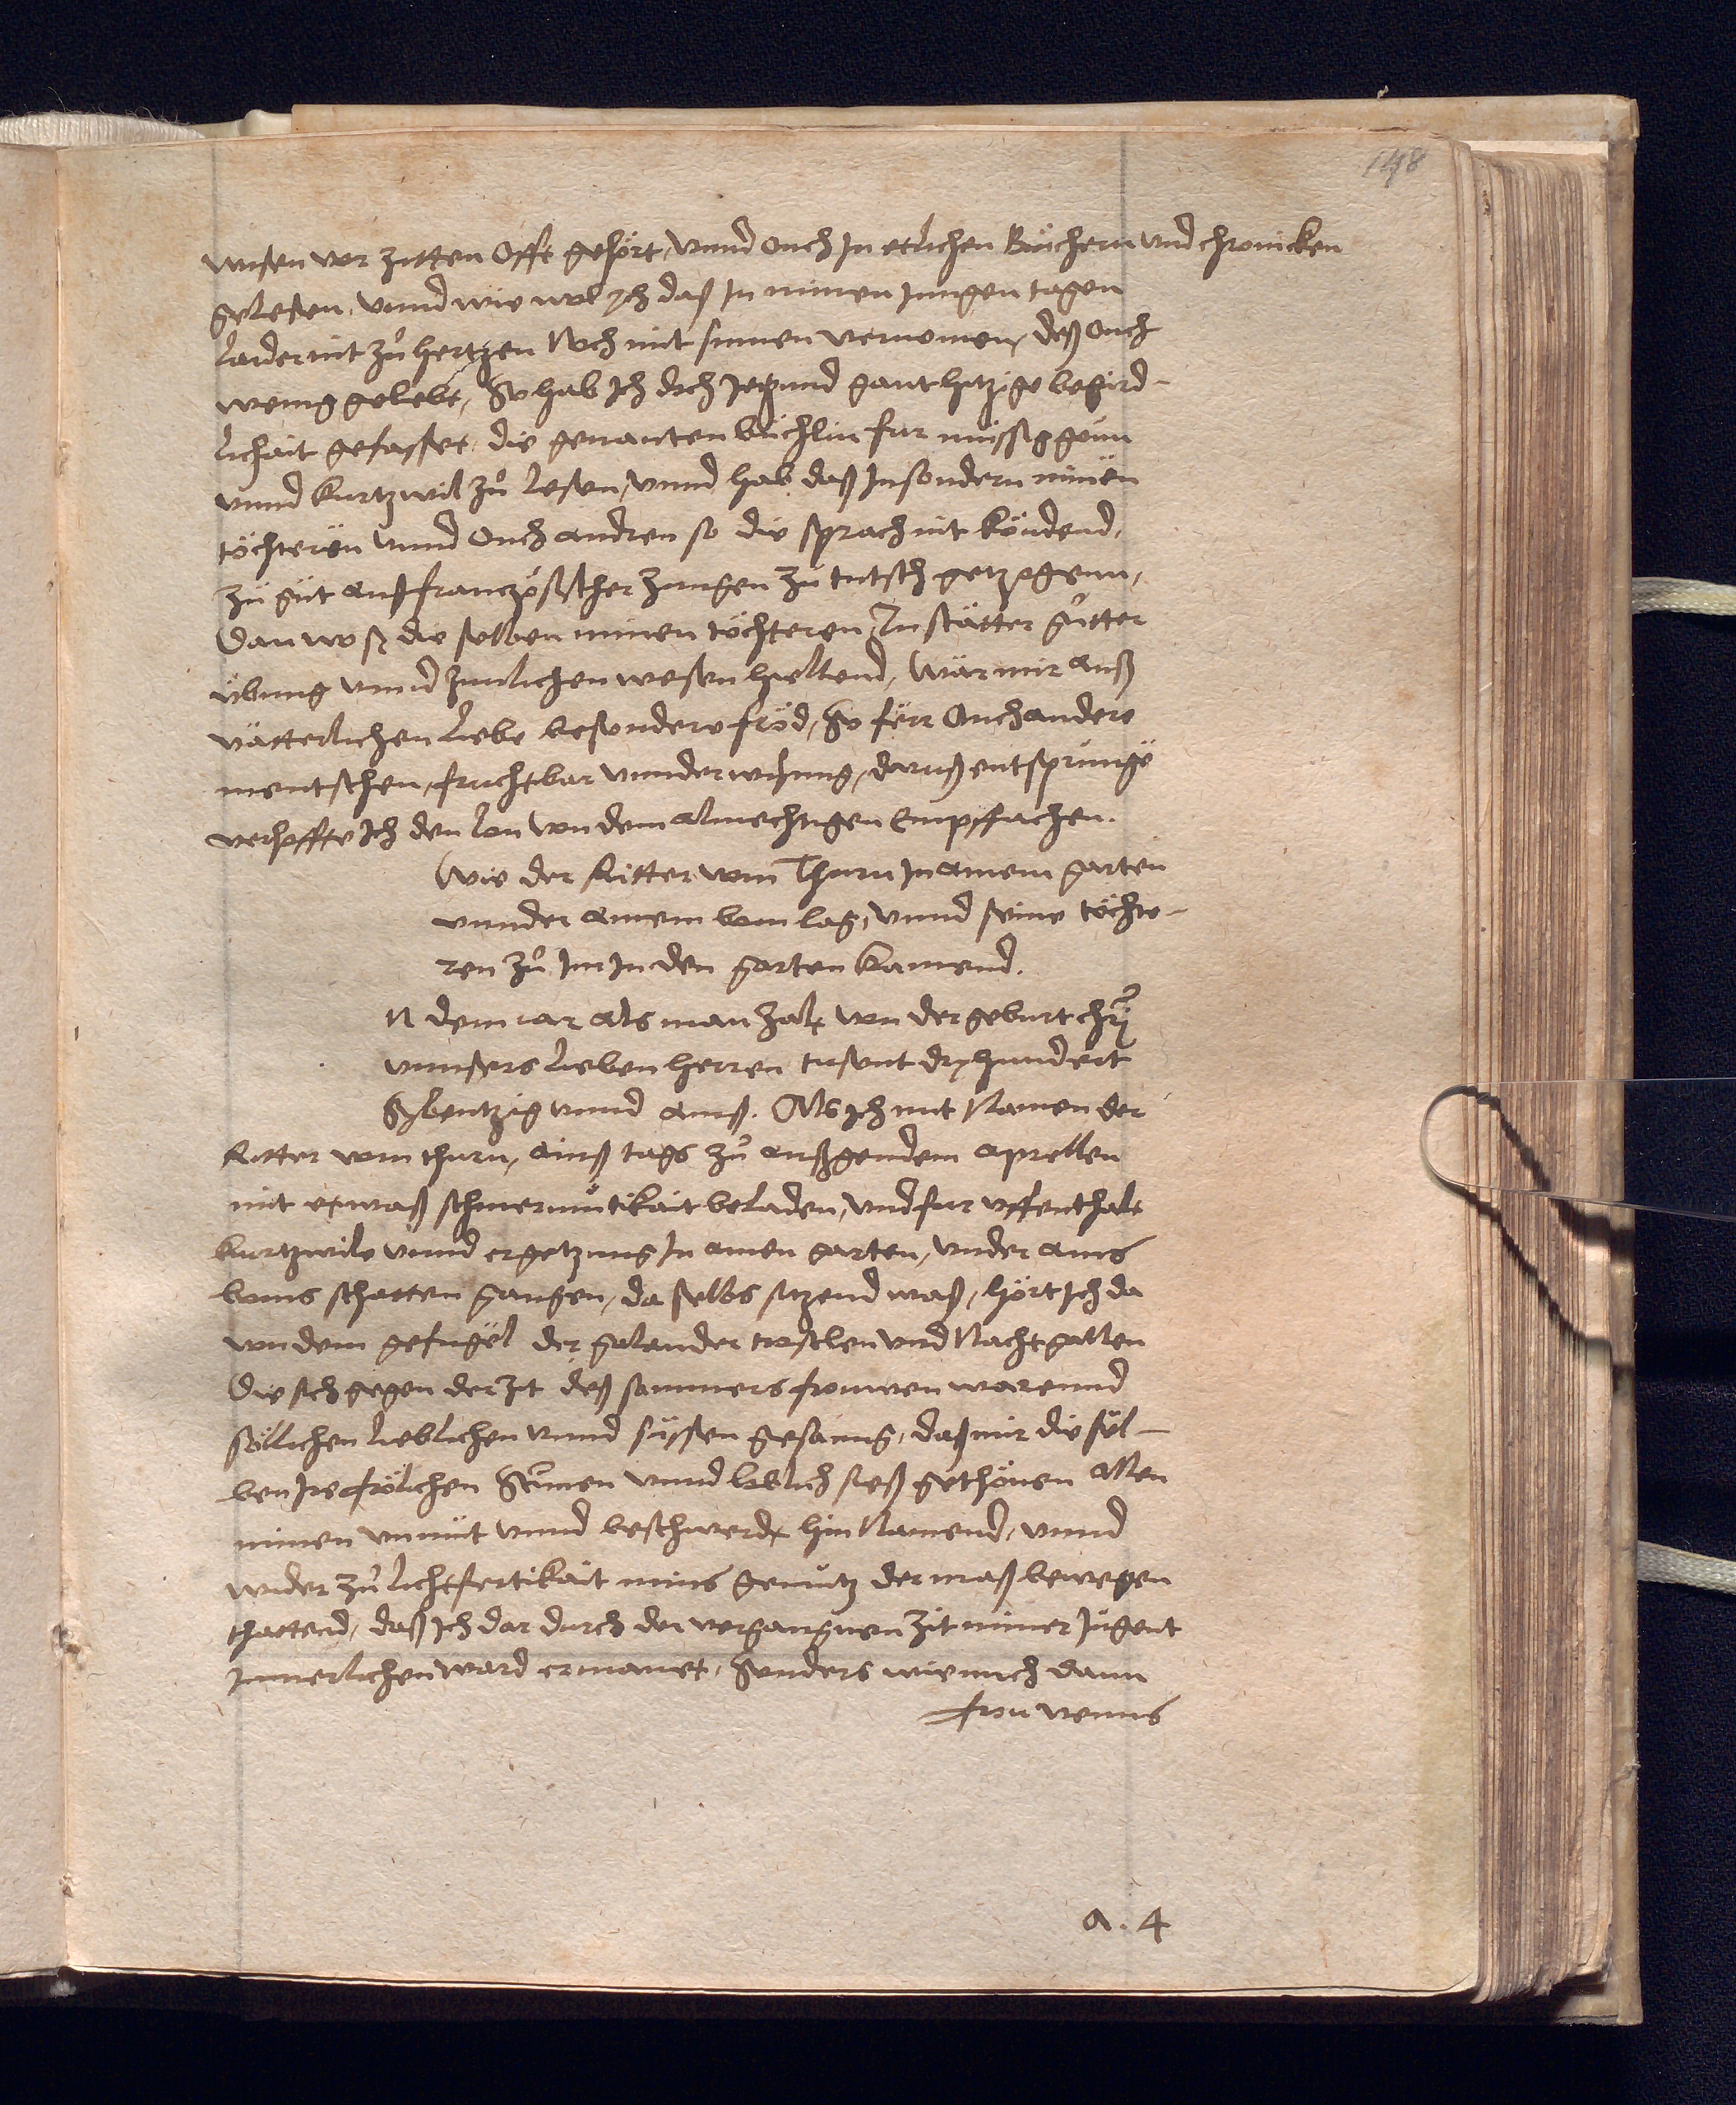 148
wisen vor zitten Offt gehört, vnnd ouch Jn etlichen Büchern vnd chronicken
gelesen, vnnd wie wol ych daß Jn minen Jungen tagen
laider nit zů hertzen Noch mit sinnen vernomen, deß ouch
wenig gelebt, So hab Jch doch Jetzund gantz hitzige begird-
lichait gefasset, die genanten büchlin fur müssig genn
vnnd kurtzwil zů lesen, vnnd hab daß Jnsondern minen
töchteren vnnd Ouch andren so die sprach nit köndend,
zů gůt auß französischer zungen zů tutsch getzogenn,
Dan wo sy die selben minen töchteren, Jn stätter gůtter
übung vnnd zimlichen wesen hieltend, Wär mir auß
vätterlichen Liebe besondere fröd, So ferr Ouch andere
mentschen, fruchtbar vnnderwysung, daruß entsprunge
verhoffte Jch den lon von dem almechtigen Empffachen.
Wie der Ritter vom Thurn Jn ainem garten
vnnder ainem bom lag, vnnd seine töchte-
ren zů Jm Jn den garten kamend.
N dem iar als man zalt von der geburt chrī
vnnsers Lieben herren tusent dryhundert
Sybentzig vnnd ainß. Als Jch mit Namen der
Ritter vom thurn, ainß tags zů außgendem aprellen
mit etwaß schwermůtikait beladen, vnd fur vffenthalt
kurtzwile vnnd ergetzung Jn ainen garten, vnder ains
boms schatten gangen, da selbs sitzend waß, hört Jch da
von dem gefugel der galander trostlen vnd Nachtgallen
Die sich gegen der zit deß sommers frouwen warennd
söllichen lieblichen vnnd süssen gesanng, daß mir die sel-
ben Jre frölichen Stimen vnnd lieblich sieß gethönen Allen
minen vnmůt vnnd beschwerdt hin Namend, vnnd
wider zů lichtfertikait mins gemůtz der maß bewegen
thattend, daß Jch dar durch der vergangnen zit miner Jugent
Jnnerlichen ward ermanet, Sonders wie mich dann
frou venus
a. 4